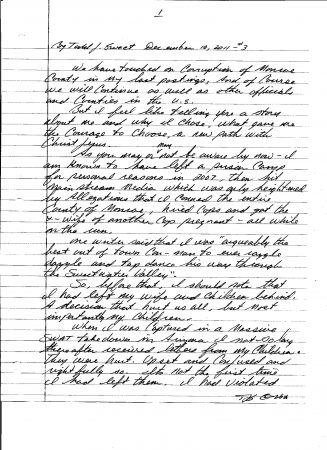 1
By Todd J. Sweet December 10, 2011 #3
We have touched on Corruption of Monroe
County in my last postings, and of Course
we will Continue as well as other officials
and Counties in the U.S.
But I feel like telling you a story
about me and why I chose, what gave me
the Courage to Choose, a new path with
Christ Jesus.
As you may or may not be aware by now - I
am known to have left a prison Camp
for personal reasons in 2007. Then hit
Main stream Media which was only heightened
by Allegations that I Conned the entire
County of Monroe, hired Cops and got the
X-wife of another Cop pregnant - all while
on the run.
One writer said that I was "arguably the
best out of town Con-man to ever wiggle
waggle and tap dance his way through
the Sweetwater Valley".
So, before that, I should note that
I had left my wife and Children behind.
A decision that hurt us all, but most
importantly my Children.
When I was Captured in a Massive
SWAT takedown in Arizona I not so long
thereafter received letters from my Children.
They were hurt. Upset and Confused and
rightfully so. It's not the first time
I had left them. I had violated